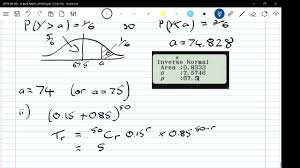 P(Y>a) = 1/6 so P(Y<a) = 5/6
5/6 1/6
67.5 a
a = 74.828
Inverse Normal
Area :0.8333
σ :7.5746
μ :67.5
a = 74 (or a = 75)
ii) (0.15 + 0.85)^50
Tr = 50Cr 0.15^r × 0.85^50-r
= 5